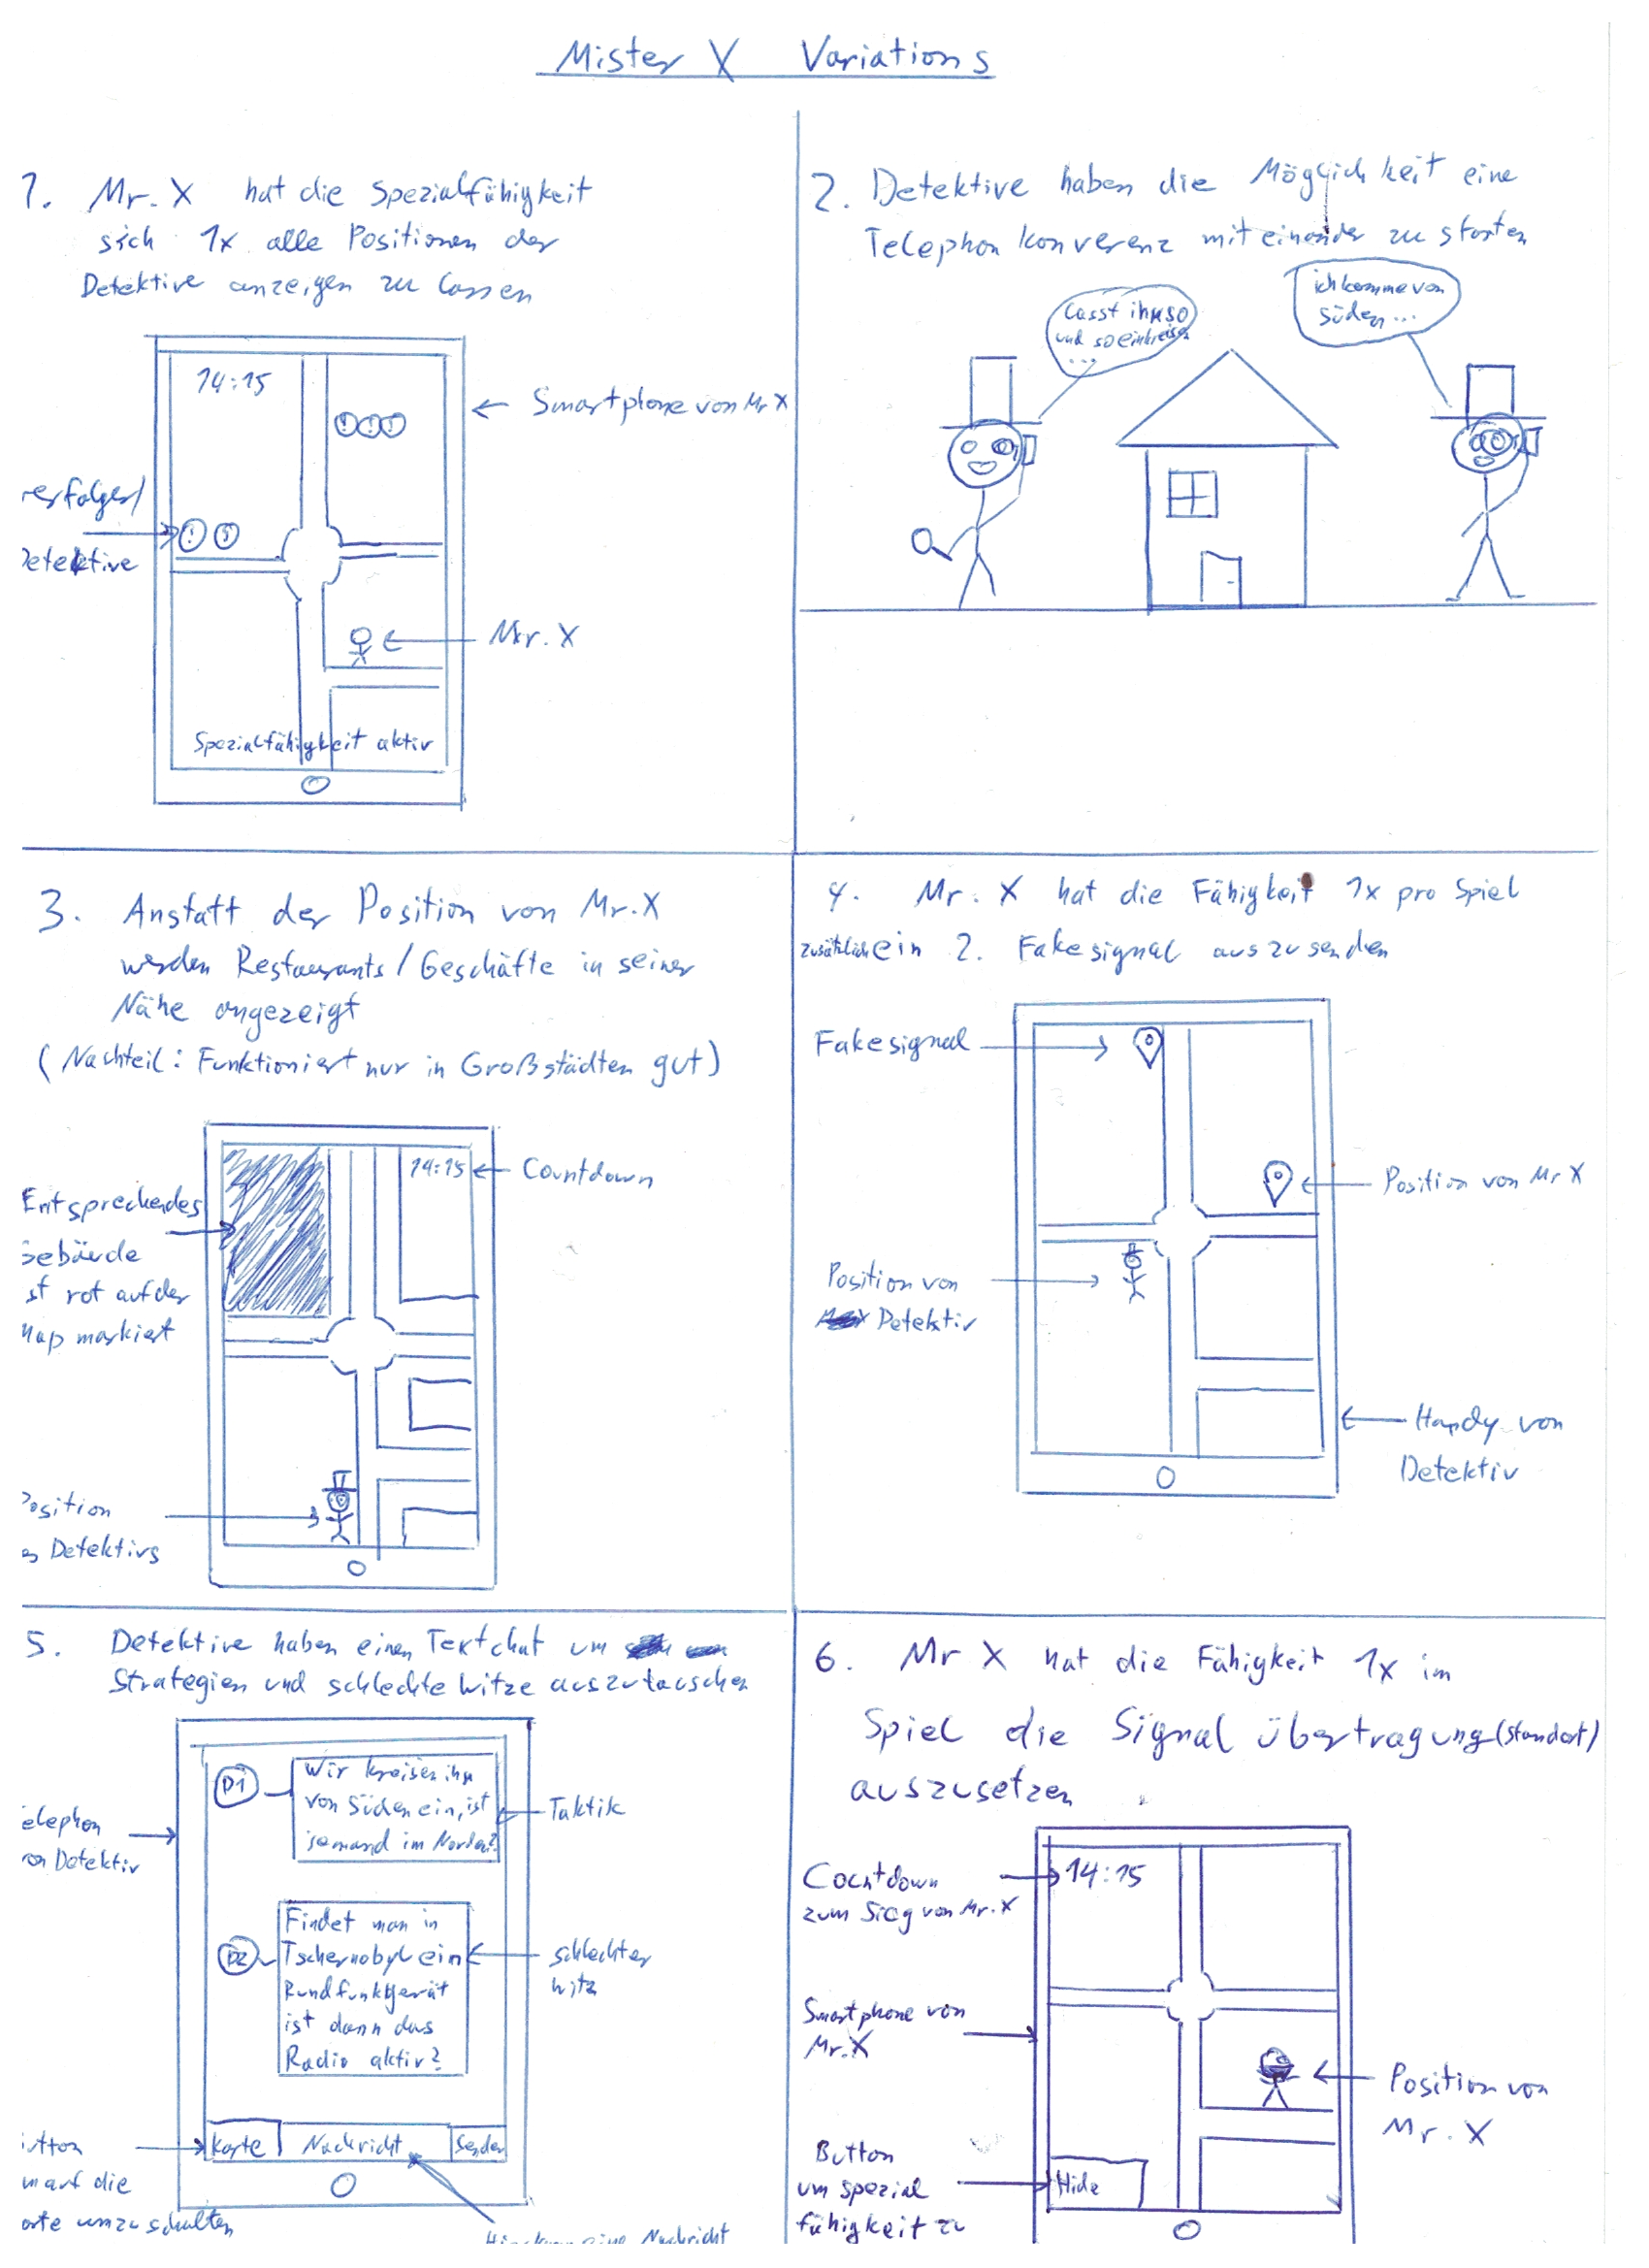 Mister X Variations
1. Mr. X hat die Spezialfähigkeit
sich 1x alle Positionen der
Detektive anzeigen zu lassen
14:15
Smartphone von Mr X
Detektive
Mr. X
Spezialfähigkeit aktiv
2. Detektive haben die Möglichkeit eine
Telephon konverenz miteinander zu starten
Lasst ihn so
und so einkreisen
...
ich komme von
Süden...
3. Anstatt der Position von Mr. X
werden Restaurants/Geschäfte in seiner
Nähe angezeigt
(Nachteil: Funktioniert nur in Großstädten gut)
14:15
Countdown
Entsprechendes
Gebäude
ist rot auf der
Map markiert
Position
Detektivs
4. Mr. X hat die Fähigkeit 1x pro Spiel
zusätzlich ein 2. Fakesignal auszusenden
Fakesignal
Position von Mr X
Position von
Detektiv
Handy von
Detektiv
5. Detektive haben einen Textchat um
Strategien und schlechte Witze auszutauschen
D1
Wir kreisen ihn
von Süden ein, ist
jemand im Norden?
Taktik
elephon
von Detektiv
D2
Findet man in
Tschernobyl ein
Rundfunkgerät
ist dann das
Radio aktiv?
schlechter
Witz
Karte
Nachricht
Senden
utton
um auf die
arte umzuschalten
Nachricht
6. Mr X hat die Fähigkeit 1x im
Spiel die Signal übertragung (Standort)
auszusetzen
Countdown
zum Sieg von Mr. X
14:15
Smartphone von
Mr. X
Position von
Mr. X
Button
um spezial
fähigkeit zu
Hide